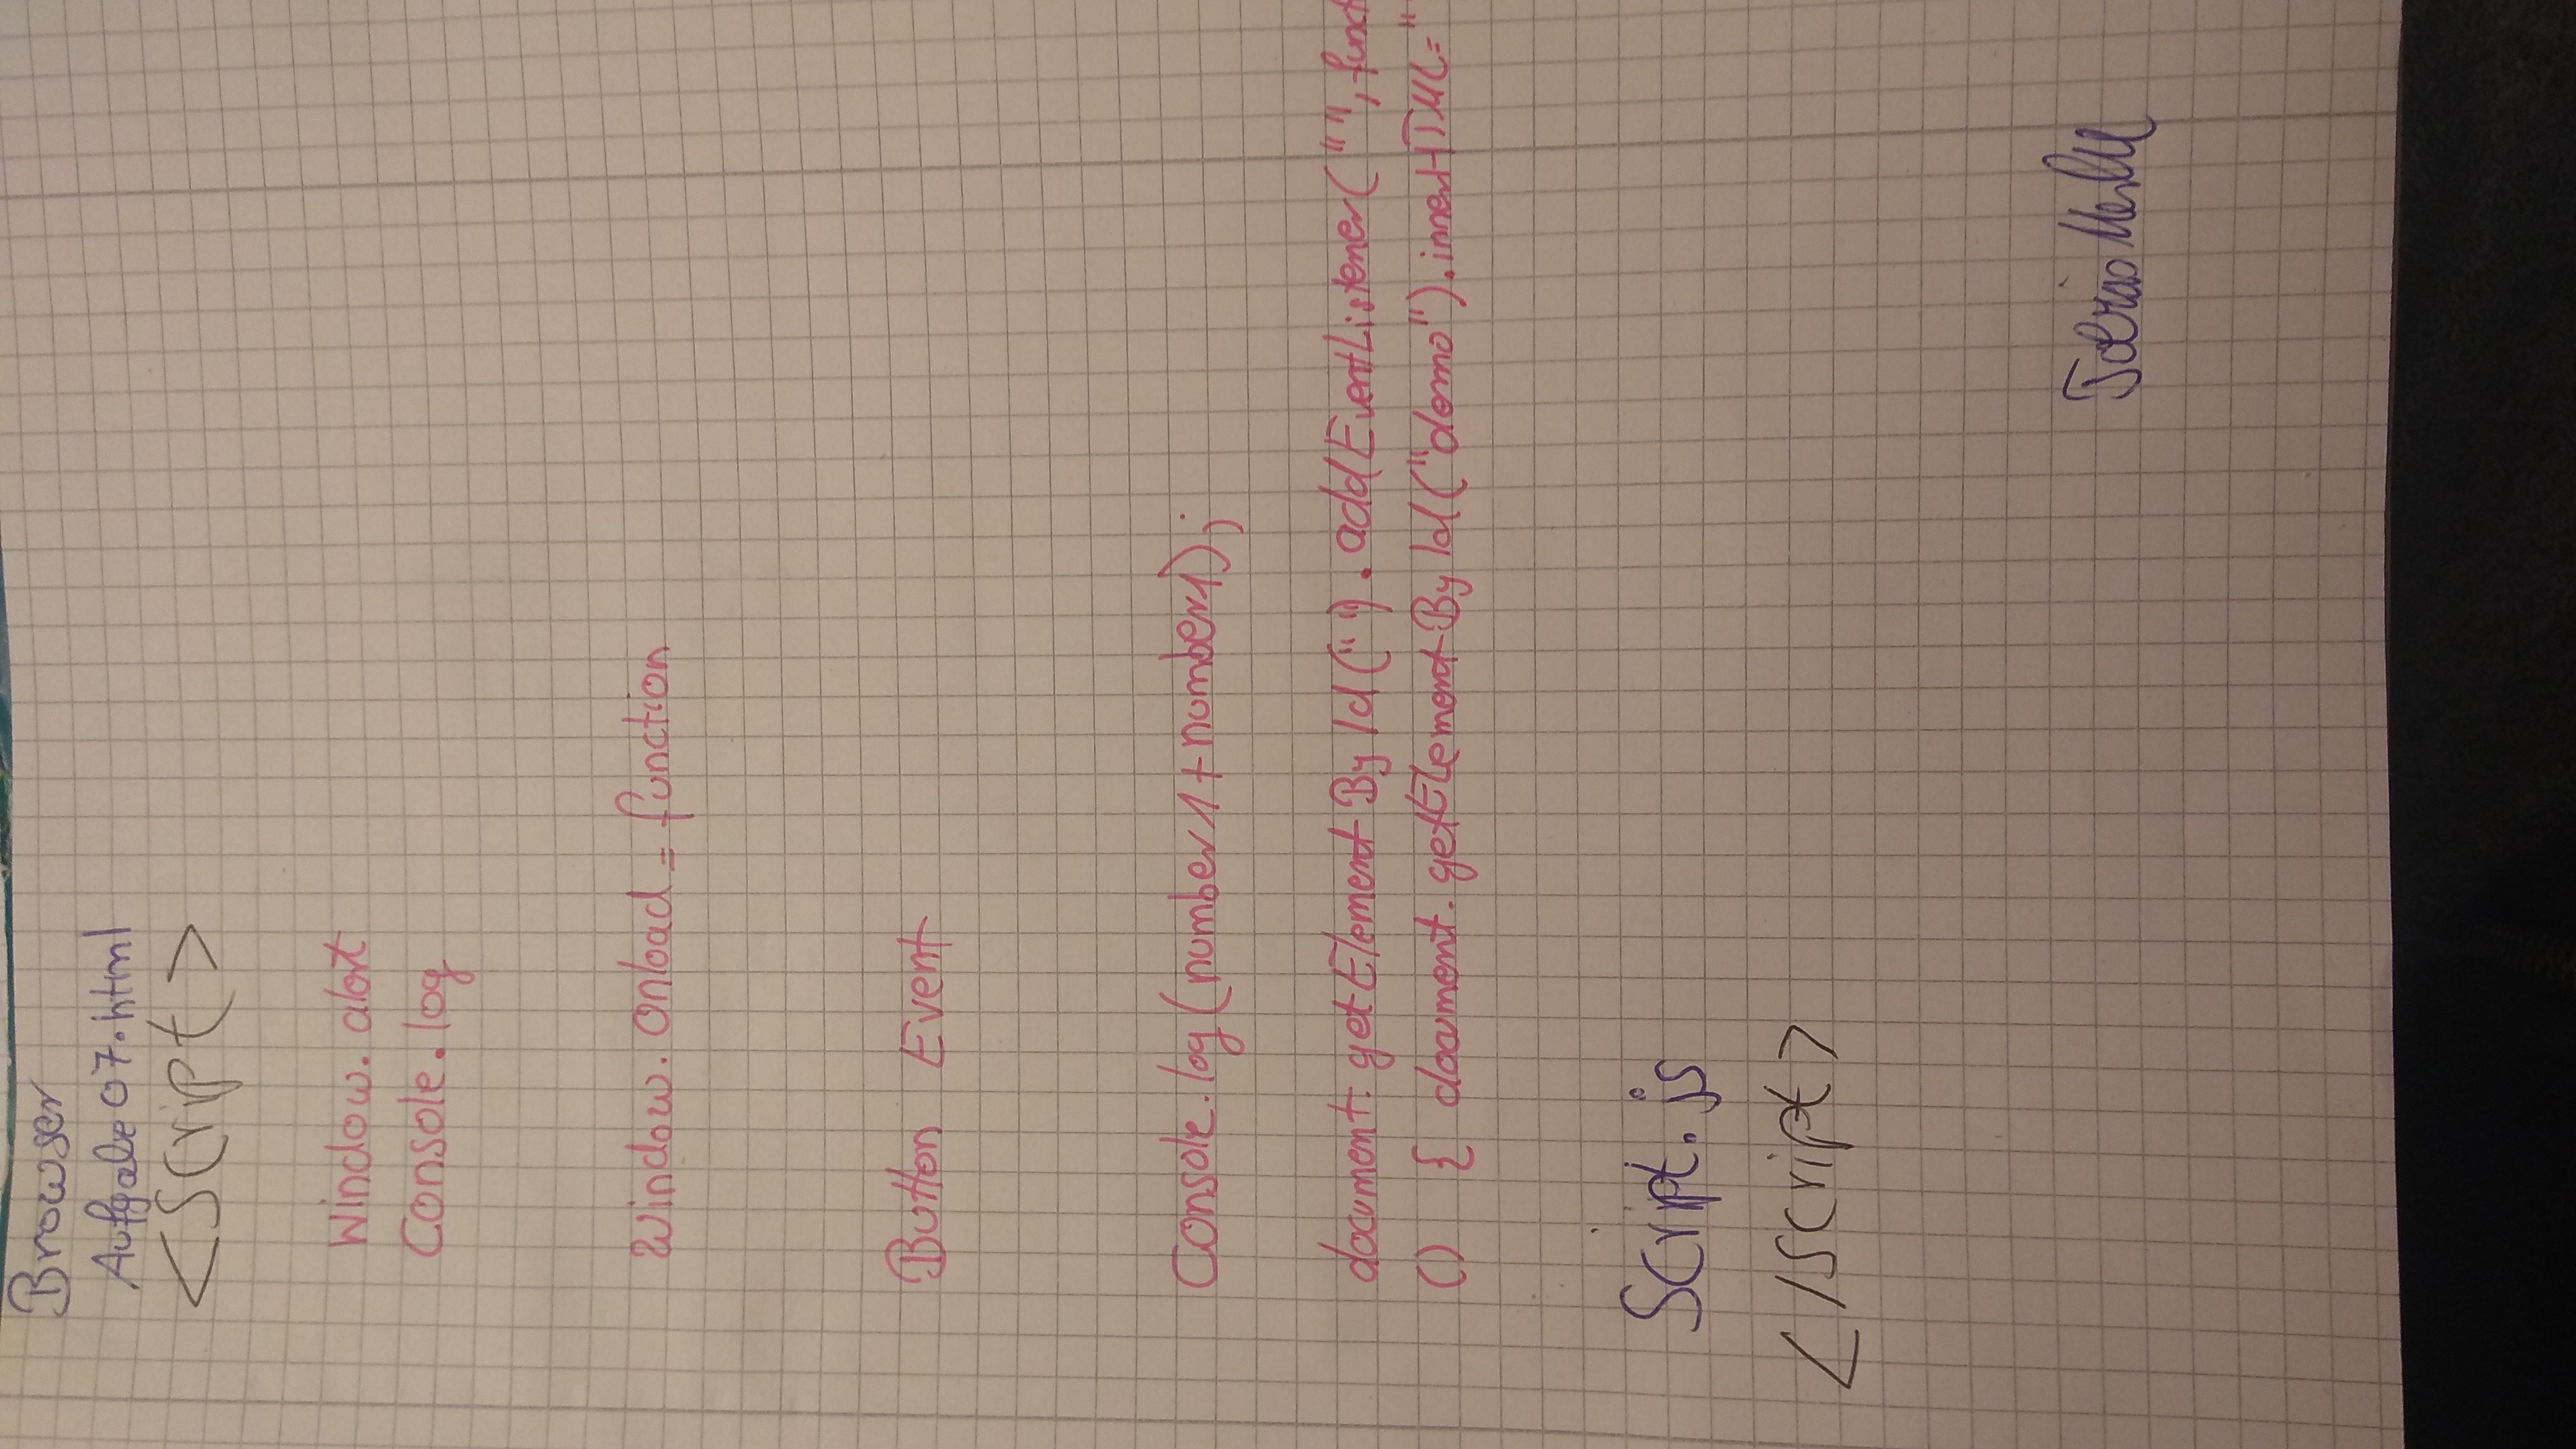 Browser
Aufgabe 07.html
<Script>
Window.alert
Console.log
Window.Onload = function
Button Event
Console.log(number1+number1);
document.getElementById(" ").addEventListener(" ", funct
() { document.getElementById("demo").innerHTML="
Script.js
</Script>
Tobias